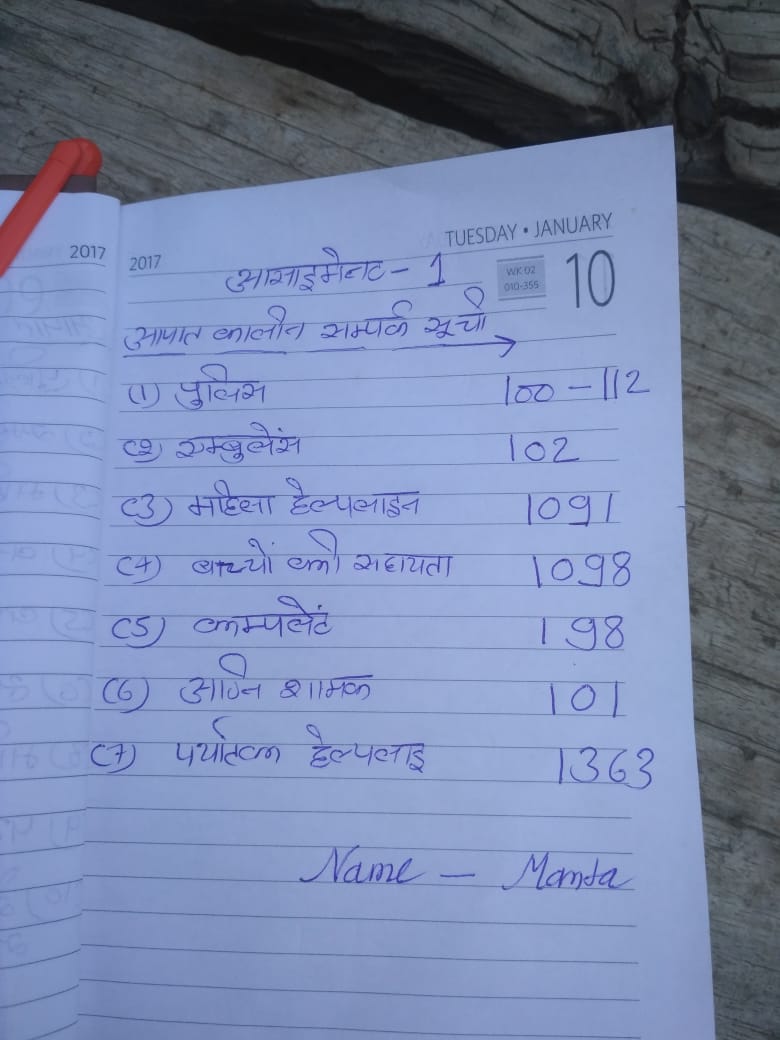 2017
2017
TUESDAY • JANUARY
WK 02
010-355
10
आसाइमेनट - 1
आपात कालीन सम्पर्क सूची
(1) पुलिस 100 - 112
(2) एम्बुलेंस 102
(3) महिला हेल्पलाइन 1091
(4) बच्चों की सहायता 1098
(5) कम्पलेंट 198
(6) अग्नि शामक 101
(7) पर्यातक हेल्पलाइ 1363
Name - Mamta